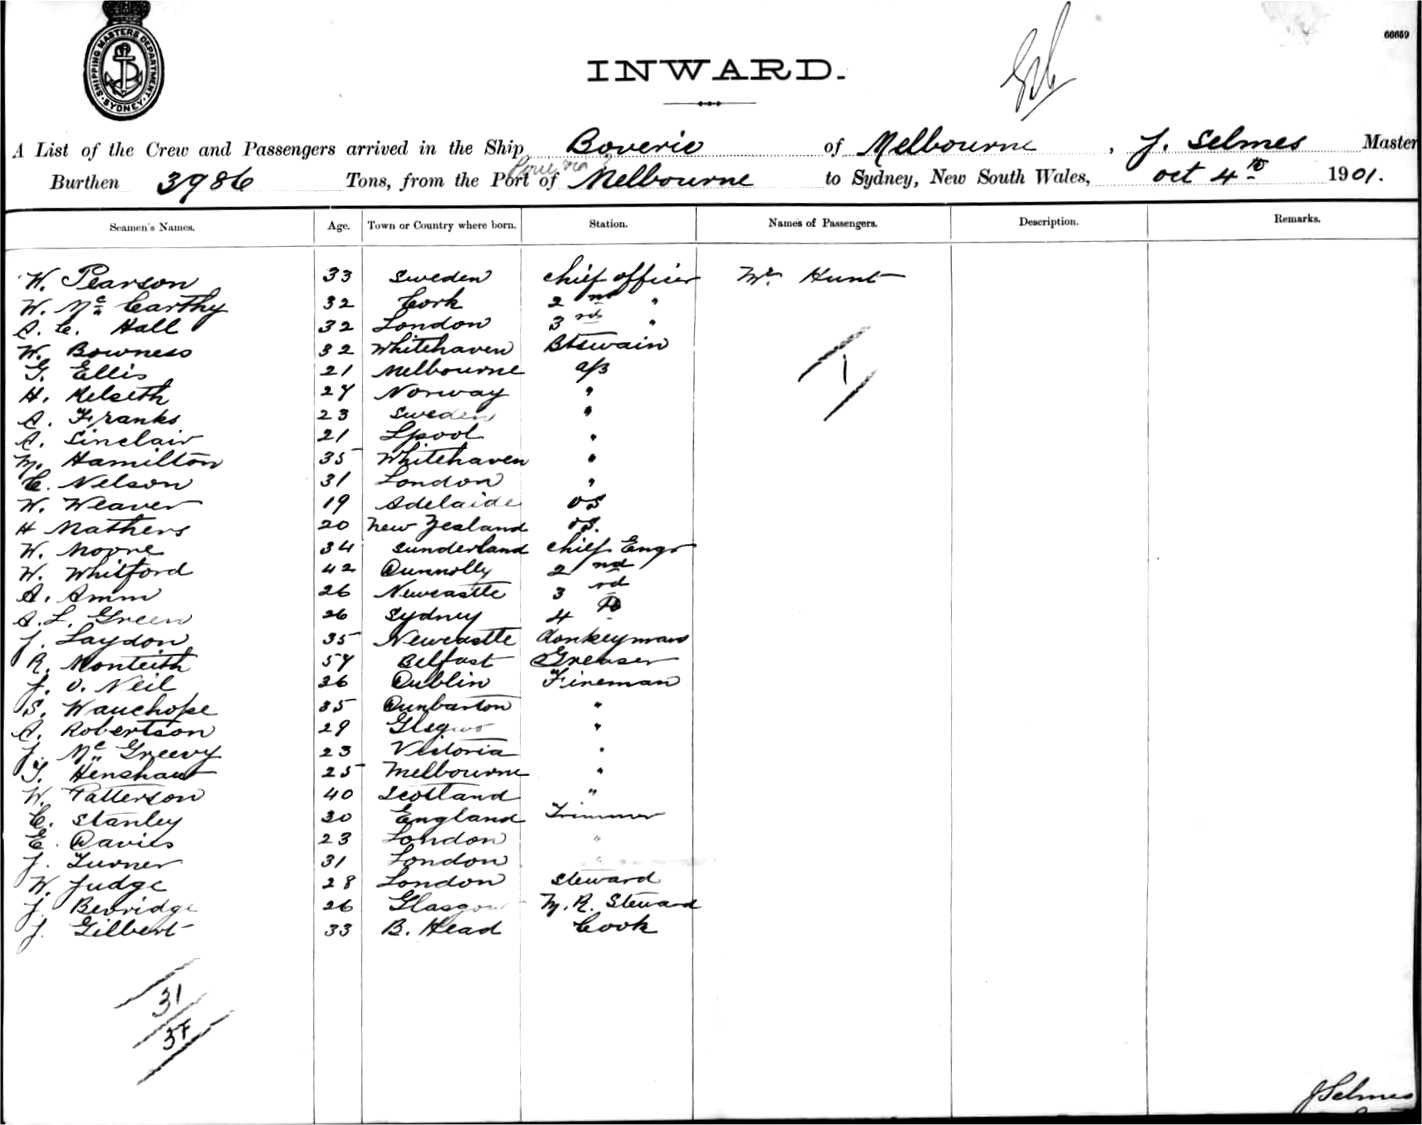 SHIPPING MASTERS DEPARTMENT · SYDNEY ·
66659
INWARD.
A List of the Crew and Passengers arrived in the Ship Boverie of Melbourne, J. Selmes Master
Burthen 3986 Tons, from the Port of Melbourne to Sydney, New South Wales, Oct 4th 1901.
Seamen's Names. Age. Town or Country where born. Station. Names of Passengers. Description. Remarks.
W. Pearson 33 Sweden Chief officer Mr Hunt
W. McCarthy 32 Cork 2nd "
A. C. Hall 32 London 3rd "
W. Bowness 32 Whitehaven Btswain
G. Ellis 21 Melbourne a/b 1
H. Kelseth 27 Norway "
A. Franks 23 Sweden "
A. Sinclair 21 Lpool "
M. Hamilton 35 Whitehaven "
C. Nelson 31 London "
W. Weaver 19 Adelaide OS
H Mathers 20 New Zealand OS.
W. Moore 34 Sunderland Chief Engr
W. Whitford 42 Dunnolly 2nd
A. Amm 26 Newcastle 3rd
A. L. Green 26 Sydney 4th
J. Laydon 35 Newcastle Donkeyman
R. Monteith 57 Belfast Greaser
J. O. Neil 36 Dublin Fireman
S. Wauchope 35 Dunbarton "
A. Robertson 29 "
J. McGreevy 23 Victoria "
T. Henshaw 25 Melbourne "
W. Patterson 40 Scotland "
C. Stanley 30 England Trimmer
E. Davies 23 London "
J. Turner 31 London
W. Judge 28 London Steward
J. Bevridge 26 Glasgow M. R. Steward
J. Gilbert 33 B. Head Cook
31
J Selmes